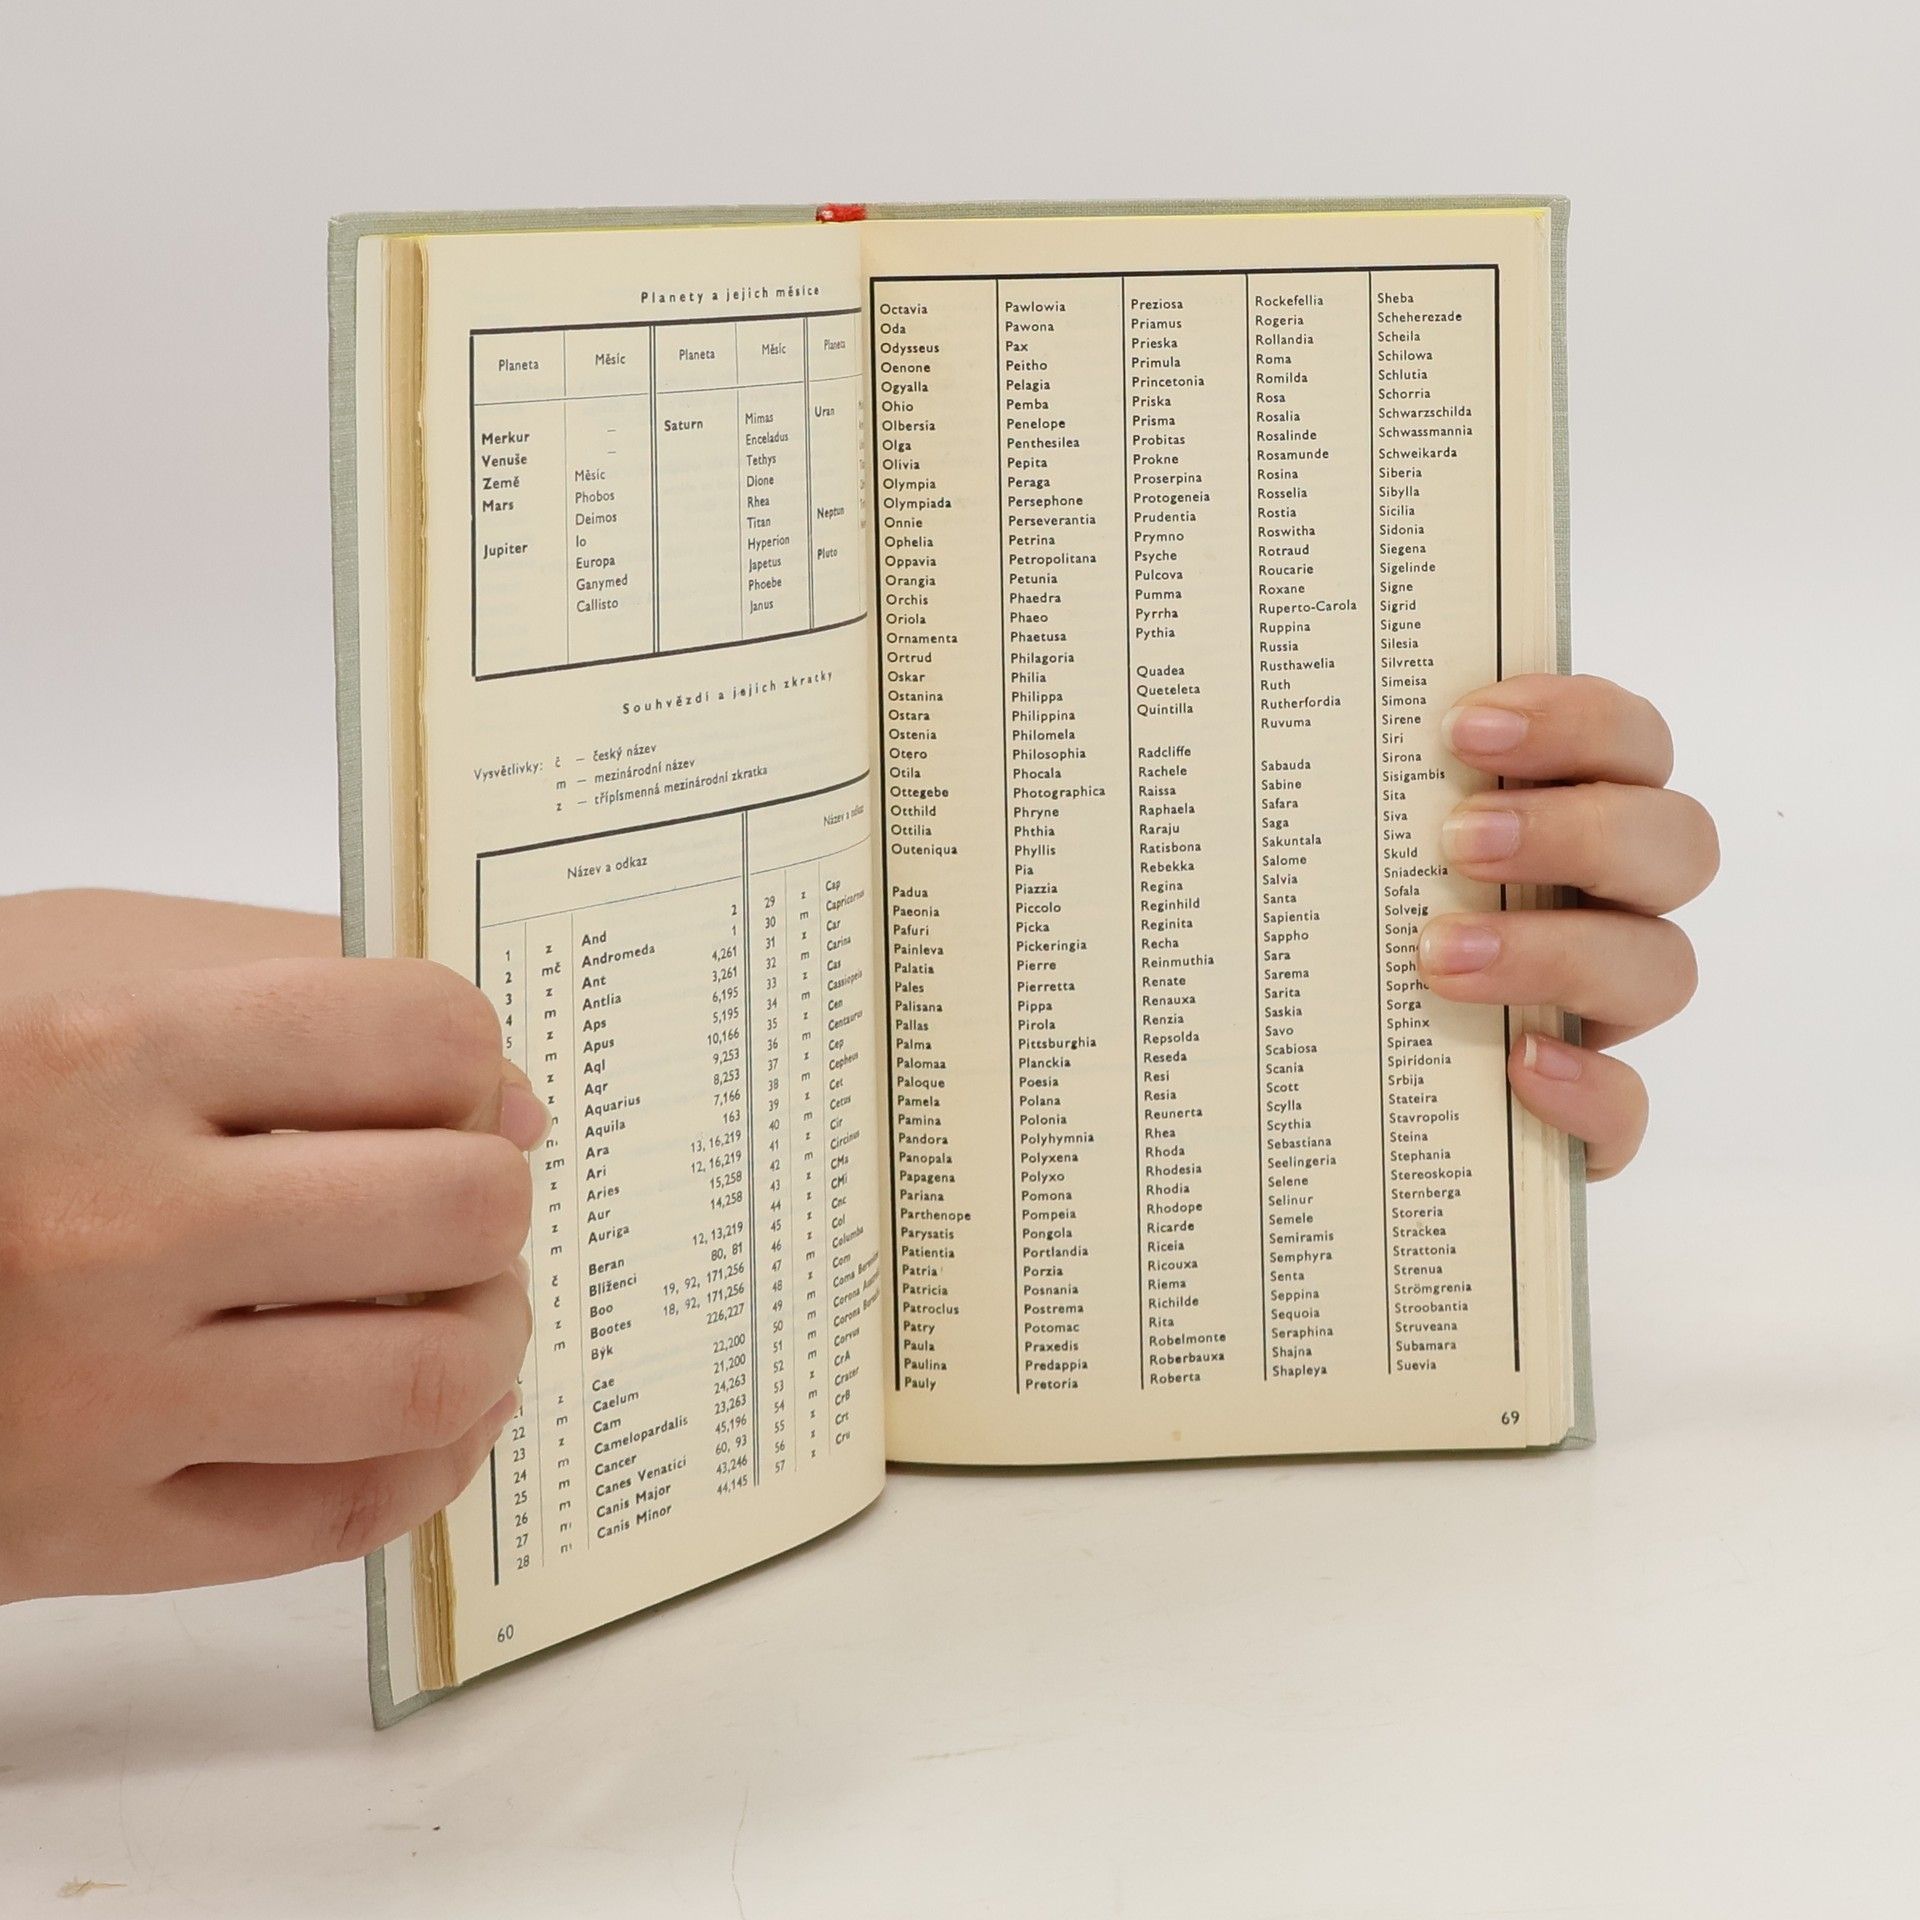 Planety a jejich měsíce
Planeta
Měsíc
Merkur –
Venuše –
Země Měsíc
Mars Phobos
Deimos
Jupiter Io
Europa
Ganymed
Callisto
Planeta
Měsíc
Saturn Mimas
Enceladus
Tethys
Dione
Rhea
Titan
Hyperion
Japetus
Phoebe
Janus
Planeta
Uran
Neptun
Pluto
Souhvězdí a jejich zkratky
Vysvětlivky: č – český název
m – mezinárodní název
z – třípísmenná mezinárodní zkratka
Název a odkaz
1 z And 2
2 mč Andromeda 1
3 z Ant 4,261
4 m Antlia 3,261
5 z Aps 6,195
m Apus 5,195
z Aql 10,166
z Aqr 9,253
Aquarius 8,253
Aquila 7,166
zm Ara 163
z Ari 13, 16,219
m Aries 12, 16,219
z Aur 15,258
m Auriga 14,258
č Beran 12, 13,219
č Blíženci 80, 81
z Boo 19, 92, 171,256
m Bootes 18, 92, 171,256
Býk 226,227
z Cae 22,200
22 m Caelum 21,200
23 z Cam 24,263
24 m Camelopardalis 23,263
25 m Cancer 45,196
26 m Canes Venatici 60, 93
27 m Canis Major 43,246
28 m Canis Minor 44,145
Název a odkaz
29 z Cap
30 m Capricornus
31 z Car
32 m Carina
33 z Cas
34 m Cassiopeia
35 z Cen
36 m Centaurus
37 z Cep
38 m Cepheus
39 z Cet
40 m Cetus
41 z Cir
42 m Circinus
43 z CMa
44 z CMi
45 z Cnc
46 z Col
47 m Columba
48 z Com
49 m Coma
50 m Corona
51 m Corona
52 m Corvus
53 z CrA
54 m Crater
55 z CrB
56 z Crt
57 z Cru
60
Octavia
Oda
Odysseus
Oenone
Ogyalla
Ohio
Olbersia
Olga
Olivia
Olympia
Olympiada
Onnie
Ophelia
Oppavia
Orangia
Orchis
Oriola
Ornamenta
Ortrud
Oskar
Ostanina
Ostara
Ostenia
Otero
Otila
Ottegebe
Otthild
Ottilia
Outeniqua
Padua
Paeonia
Pafuri
Painleva
Palatia
Pales
Palisana
Pallas
Palma
Palomaa
Paloque
Pamela
Pamina
Pandora
Panopala
Papagena
Pariana
Parthenope
Parysatis
Patientia
Patria
Patricia
Patroclus
Patry
Paula
Paulina
Pauly
Pawlowia
Pawona
Pax
Peitho
Pelagia
Pemba
Penelope
Penthesilea
Pepita
Peraga
Persephone
Perseverantia
Petrina
Petropolitana
Petunia
Phaedra
Phaeo
Phaetusa
Philagoria
Philia
Philippa
Philippina
Philomela
Philosophia
Phocala
Photographica
Phryne
Phthia
Phyllis
Pia
Piazzia
Piccolo
Picka
Pickeringia
Pierre
Pierretta
Pippa
Pirola
Pittsburghia
Planckia
Poesia
Polana
Polonia
Polyhymnia
Polyxena
Polyxo
Pomona
Pompeia
Pongola
Portlandia
Porzia
Posnania
Postrema
Potomac
Praxedis
Predappia
Pretoria
Preziosa
Priamus
Prieska
Primula
Princetonia
Priska
Prisma
Probitas
Prokne
Proserpina
Protogeneia
Prudentia
Prymno
Psyche
Pulcova
Pumma
Pyrrha
Pythia
Quadea
Queteleta
Quintilla
Radcliffe
Rachele
Raissa
Raphaela
Raraju
Ratisbona
Rebekka
Regina
Reginhild
Reginita
Recha
Reinmuthia
Renate
Renauxa
Renzia
Repsolda
Reseda
Resi
Resia
Reunerta
Rhea
Rhoda
Rhodesia
Rhodia
Rhodope
Ricarde
Riceia
Ricouxa
Riema
Richilde
Rita
Robelmonte
Roberbauxa
Roberta
Rockefellia
Rogeria
Rollandia
Roma
Romilda
Rosa
Rosalia
Rosalinde
Rosamunde
Rosina
Rosselia
Rostia
Roswitha
Rotraud
Roucarie
Roxane
Ruperto-Carola
Ruppina
Russia
Rusthawelia
Ruth
Rutherfordia
Ruvuma
Sabauda
Sabine
Safara
Saga
Sakuntala
Salome
Salvia
Santa
Sapientia
Sappho
Sara
Sarema
Sarita
Saskia
Savo
Scabiosa
Scania
Scott
Scylla
Scythia
Sebastiana
Seelingeria
Selene
Selinur
Semele
Semiramis
Semphyra
Senta
Seppina
Sequoia
Seraphina
Shajna
Shapleya
Sheba
Scheherezade
Scheila
Schilowa
Schlutia
Schorria
Schwarzschilda
Schwassmannia
Schweikarda
Siberia
Sibylla
Sicilia
Sidonia
Siegena
Sigelinde
Signe
Sigrid
Sigune
Silesia
Silvretta
Simeisa
Simona
Sirene
Siri
Sirona
Sisigambis
Sita
Siva
Siwa
Skuld
Sniadeckia
Sofala
Solvejg
Sonja
Sorga
Sphinx
Spiraea
Spiridonia
Srbija
Stateira
Stavropolis
Steina
Stephania
Stereoskopia
Sternberga
Storeria
Strackea
Strattonia
Strenua
Strömgrenia
Stroobantia
Struveana
Subamara
Suevia
69